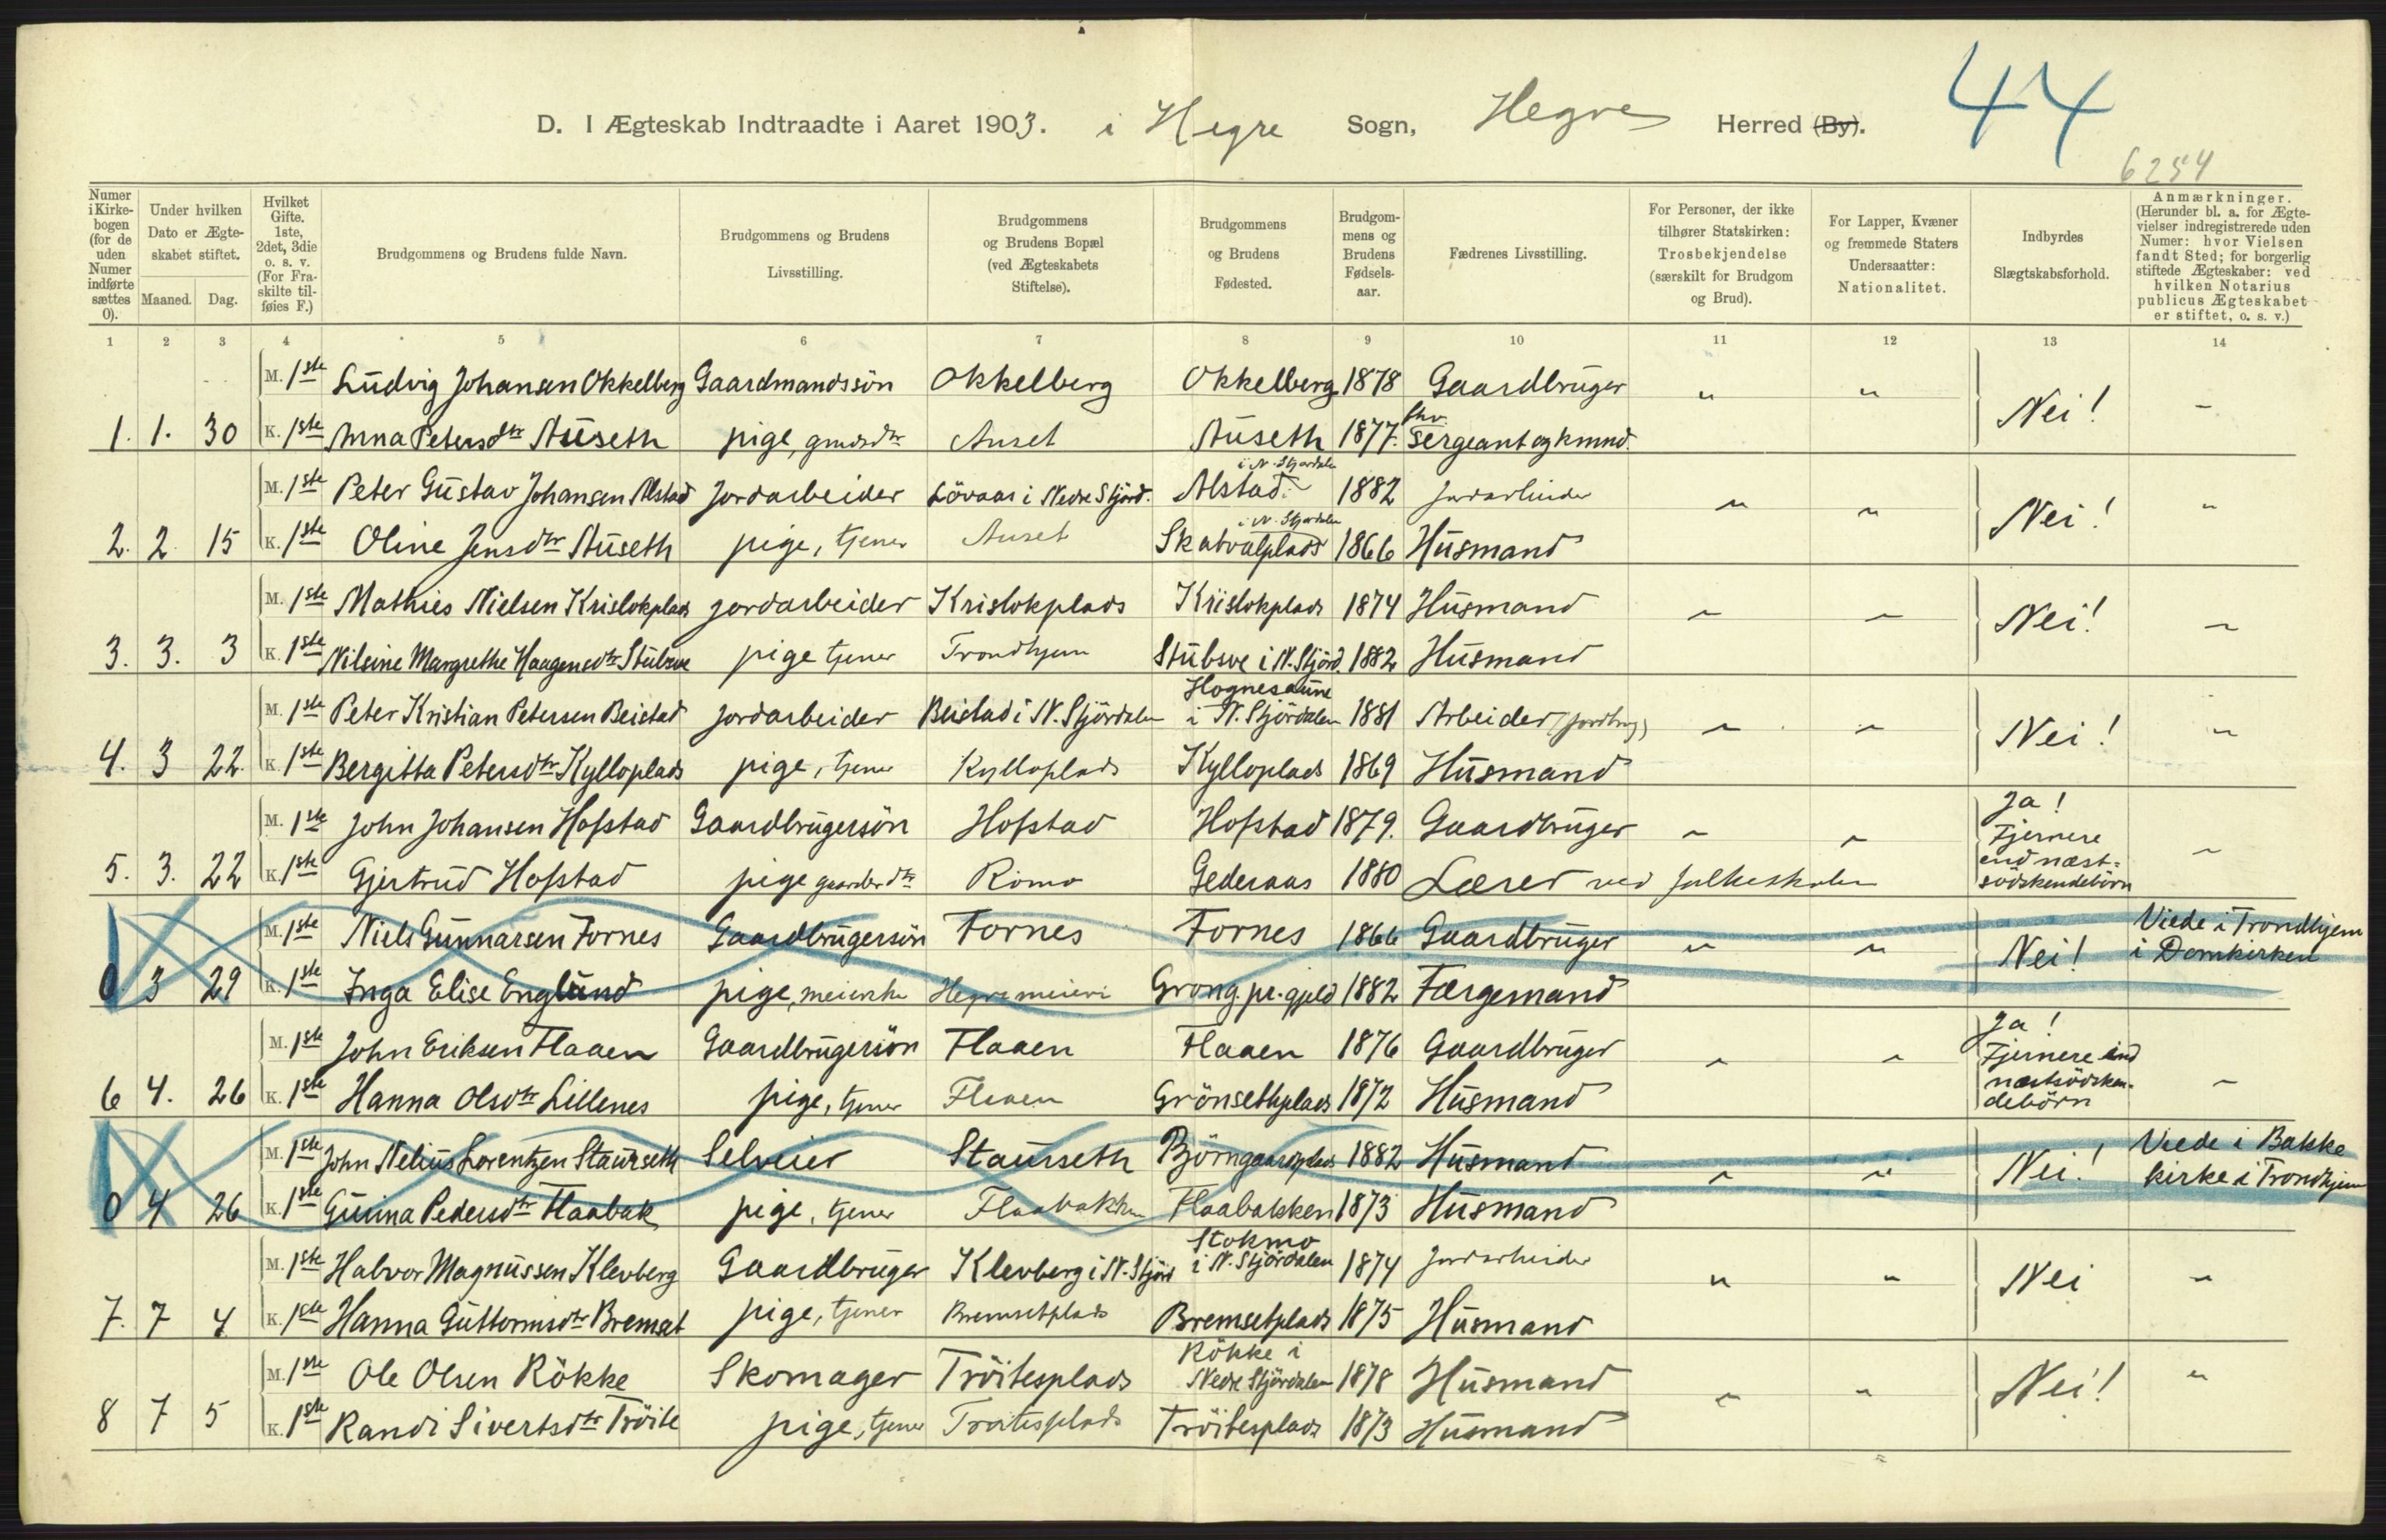 D. I Ægteskab Indtraadte i Aaret 1903. i Hegre Sogn, Hegre Herred (By).
44
6254
Numer i Kirkebogen (for de uden Numer indførte sættes 0).
Under hvilken Dato er Ægteskabet stiftet.
Maaned. Dag.
Hvilket Gifte. 1ste, 2det, 3die o. s. v. (For Fraskilte tilføies F.)
Brudgommens og Brudens fulde Navn.
Brudgommens og Brudens Livsstilling.
Brudgommens og Brudens Bopæl (ved Ægteskabets Stiftelse).
Brudgommens og Brudens Fødested.
Brudgommens og Brudens Fødselsaar.
Fædrenes Livsstilling.
For Personer, der ikke tilhører Statskirken: Trosbekjendelse (særskilt for Brudgom og Brud).
For Lapper, Kvæner og fremmede Staters Undersaatter: Nationalitet.
Indbyrdes Slægtskabsforhold.
Anmærkninger. (Herunder bl. a. for Ægtevielser indregistrerede uden Numer: hvor Vielsen fandt Sted; for borgerlig stiftede Ægteskaber: ved hvilken Notarius publicus Ægteskabet er stiftet, o. s. v.)
1 2 3 4 5 6 7 8 9 10 11 12 13 14
M. 1ste Ludvig Johansen Okkelberg Gaardmandssön Okkelberg Okkelberg 1878 Gaardbruger " " Nei! -
1. 1. 30 K. 1ste Anna Petersdtr Auseth pige, gmdsdtr Auset Auseth 1877. fhv. Sergeant og kmnd.
M. 1ste Peter Gustav Johansen Alstad Jordarbeider Lövaas i Nedre Stjörd. Alstad i N. Stjørdalen 1882 Jordarbeider " " Nei! "
2. 2 15 K. 1ste Oline Jensdtr Auseth pige, tjener Auset Skatvalplads i N. Stjørdalen 1866 Husmand
M. 1ste Mathies Nielsen Krislokplads jordarbeider Krislokplads Krislokplads 1874 Husmand " " Nei! "
3. 3. 3 K. 1ste Nilsine Margrethe Haagensdtr Stubsve pige tjener Trondhjem Stubsve i N. Stjörd. 1882 Husmand
M. 1ste Peter Kristian Petersen Beistad jordarbeider Beistad i N. Stjördalen Hognesaune i N. Stjördalen 1881 Arbeider (jordbrug) " " Nei! "
4. 3 22. K. 1ste Bergitta Petersdtr Kylloplads pige, tjener Kylloplads Kylloplads 1869 Husmand
M. 1ste John Johansen Hofstad Gaardbrugersön Hofstad Hofstad 1879. Gaardbruger " " Ja! Fjernere end næst-södskendebörn "
5. 3. 22 K. 1ste Gjertrud Hofstad pige gaardbrdtr Romo Gederaas 1880 Lærer ved folkeskolen
M. 1ste Niels Gunnarsen Fornes Gaardbrugersön Fornes Fornes 1866 Gaardbruger " " Nei! Viede i Trondhjem i Domkirken
0 3 29 K. 1ste Inga Elise Englund pige, meierske Hegre meieri Grong pr.gjeld 1882 Færgemand
M. 1ste John Eriksen Flaaen Gaardbrugersön Flaaen Flaaen 1876 Gaardbruger " " Ja! Fjernere end næstsödskendebörn "
6 4. 26 K. 1ste Hanna Olsdtr Lillenes pige, tjener Flaaen Grönsethplads 1872 Husmand
M. 1ste John Nelius Lorentzen Staurseth Selveier Staurseth Björngaardplads 1882 Husmand " " Nei! Viede i Bakke kirke i Trondhjem
0 4 26 K. 1ste Gurina Pedersdtr Flaabak pige, tjener Flaabakken Flaabakken 1873 Husmand
M. 1ste Halvor Magnussen Klevberg Gaardbruger Klevberg i N. Stjörd Stokmo i N. Stjördalen 1874 Jordarbeider " " Nei "
7. 7 4 K. 1ste Hanna Guttormsdtr Bremset pige, tjener Bremsetplads Bremsetplads 1875 Husmand
M. 1ste Ole Olsen Rökke Skomager Tröitesplads Rökke i Nedre Stjördalen 1878 Husmand " " Nei! "
8 7 5 K. 1ste Randi Sivertsdtr Tröite pige, tjener Tröitesplads Tröitesplads 1873 Husmand